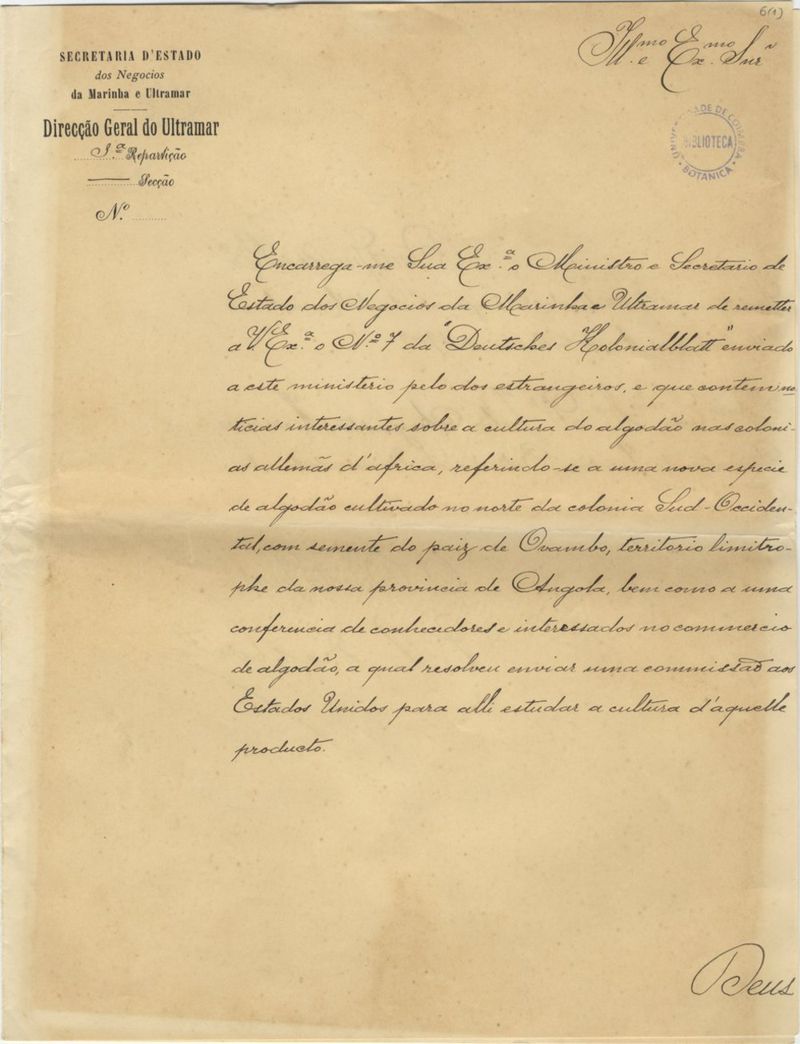 6(1)
SECRETARIA D'ESTADO
dos Negocios
da Marinha e Ultramar
Direcção Geral do Ultramar
Repartição
Secção
N.º
Ill.mo e Ex.mo Snr
UNIVERSIDADE DE COIMBRA
BIBLIOTECA
BOTANICA
Encarrega-me Sua Ex.ª o Ministro e Secretario de
Estado dos Negocios da Marinha e Ultramar de remetter
a V. Ex.ª o N.º 7 da "Deutsches Kolonialblatt" enviado
a este ministerio pelo dos estrangeiros, e que contem no-
ticias interessantes sobre a cultura do algodão nas coloni-
as allemãs d'africa, referindo-se a uma nova especie
de algodão cultivado no norte da colonia Sud-Occiden-
tal, com semente do paiz de Ovambo, territorio limitro-
phe da nossa provincia de Angola, bem como a uma
conferencia de conhecedores e interessados no commercio
de algodão, a qual resolveu enviar uma commissão aos
Estados Unidos para alli estudar a cultura d'aquelle
producto.
Deus